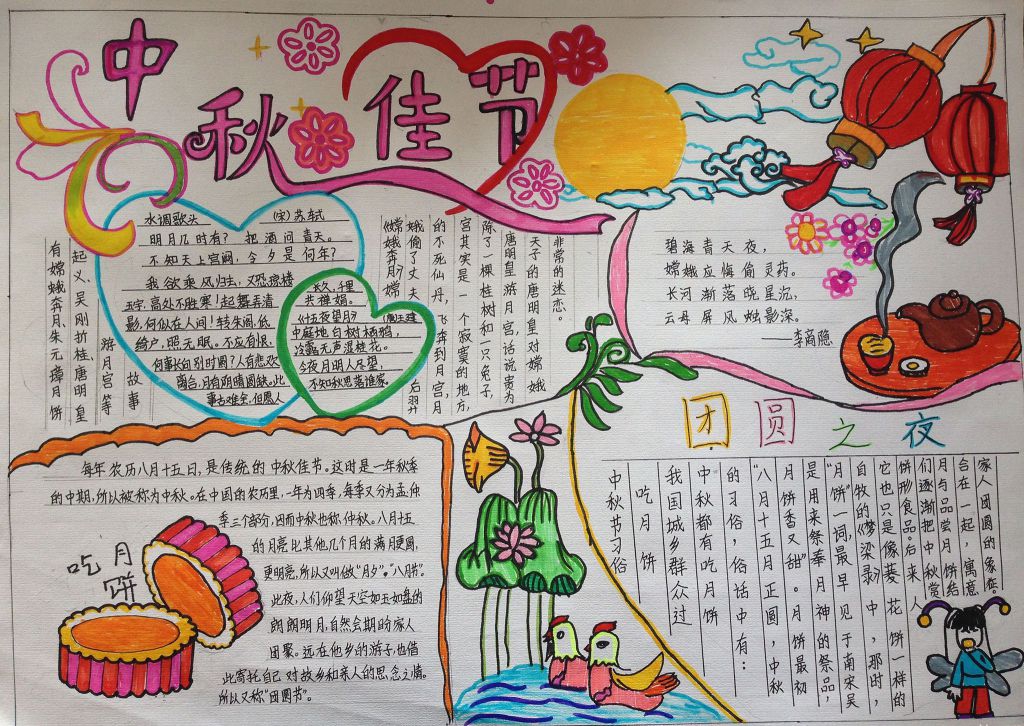 中秋佳节
水调歌头 (宋)苏轼
明月几时有？把酒问青天。
不知天上宫阙，今夕是何年？
我欲乘风归去，又恐琼楼
玉宇，高处不胜寒！起舞弄清
影，何似在人间！转朱阁，低
绮户，照无眠。不应有恨，
何事长向别时圆？人有悲欢
离合，月有阴晴圆缺。此
事古难全，但愿人
长久，千里
共婵娟。
《十五夜望月》(唐)王建
中庭地白树栖鸦，
冷露无声湿桂花。
今夜月明人尽望，
不知秋思落谁家。
有嫦娥奔月、朱元璋月饼
起义、吴刚折桂、唐明皇
游月宫等
故事
《嫦娥奔月》嫦
娥偷了丈夫后羿
的不死仙丹，飞奔到月宫。月
宫其实是一个寂寞的地方，
除了一棵桂树和一只兔子，
唐明皇游月宫，话说贵为
天子的唐明皇对嫦娥
非常的迷恋。
碧海青天夜，
嫦娥应悔偷灵药。
长河渐落晓星沉，
云母屏风烛影深。
——李商隐
每年农历八月十五日，是传统的中秋佳节。这时是一年秋季
的中期，所以被称为中秋。在中国的农历里，一年为四季，每季又分为孟仲
季三个部分，因而中秋也称仲秋。八月十五
的月亮比其他几个月的满月更圆，
更明亮，所以又叫做“月夕”。“八月节”。
此夜，人们仰望天空如玉如盘的
朗朗明月，自然会期盼家人
团聚。远在他乡的游子，也借
此寄托自己对故乡和亲人的思念之情。
所以又称“团圆节”。
吃月饼
团圆之夜
中秋节习俗
吃月饼
我国城乡群众过
中秋都有吃月饼
的习俗，俗话中有：
“八月十五月正圆，中秋
月饼香又甜”。月饼最初
是用来祭奉月神的祭品，
“月饼”一词，最早见于南宋吴
自牧的《梦梁录》中，那时，
它也只是像菱花饼一样的
饼形食品。后来人
们逐渐把中秋赏
月与品尝月饼结
合在一起，寓意
家人团圆的象征。